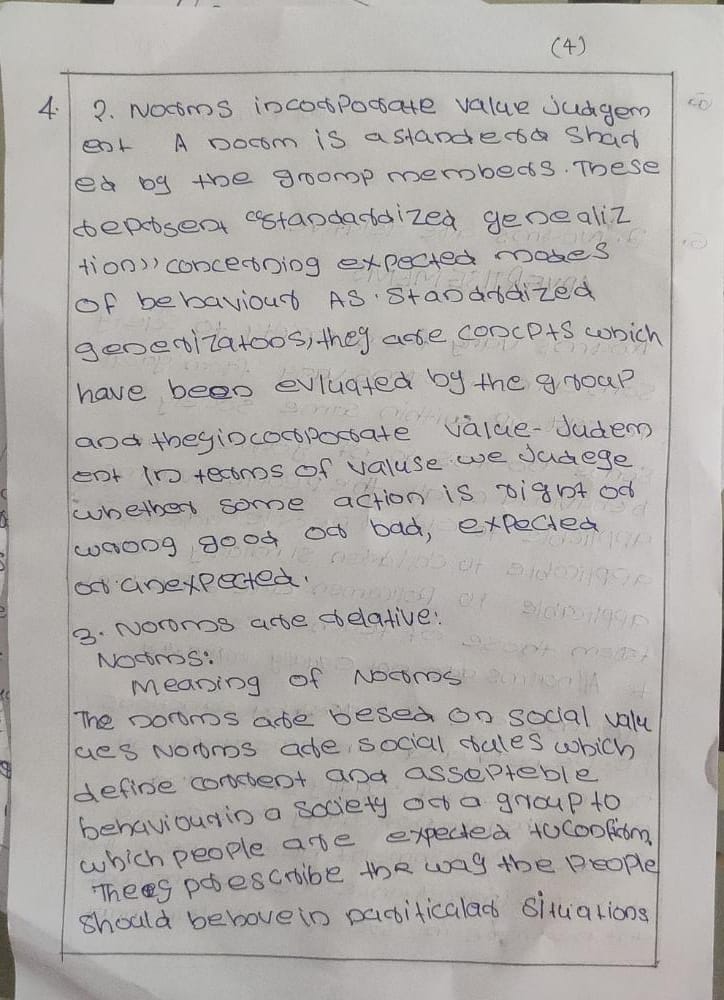 (4)
4. 2. Norms incorporate value judgem
ent A norm is a standerd Shar
ed by the groomp members. These
reprsent "standardized genealiz
tion" concerning expected modes
of behaviour As. Standrdized
generizatoos, they are concpts which
have been evluated by the group
and they incorporate value-Judem
ent In terms of valuse we Judege
whether some action is right or
wrong good or bad, expected
or unexpected.
3. Norms are relative:
Norms:
Meaning of Norms
The norms are besed on social valu
ues Norms are social rules which
define corrent and assepteble
behaviour in a society or a group to
which people are expected to Confirm
They prescribe the way the people
should behove in pariticalar situations